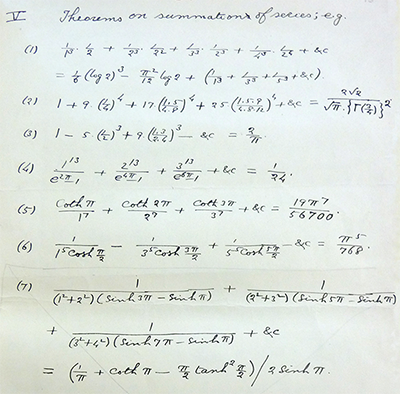 V Theorems on summations of series; e.g.
(1) 1/1³ · 1/2 + 1/2³ · 1/2² + 1/3³ · 1/2³ + 1/4³ · 1/2⁴ + &c
= 1/6 (log 2)³ − π²/12 log 2 + (1/1³ + 1/3³ + 1/5³ + &c).
(2) 1 + 9 (1/4)⁴ + 17 (1·5/4·8)⁴ + 25 (1·5·9/4·8·12)⁴ + &c = 2√2/√π · {Γ(3/4)}²
(3) 1 − 5 (1/2)³ + 9 (1·3/2·4)³ − &c = 2/π.
(4) 1¹³/e^2π−1 + 2¹³/e^4π−1 + 3¹³/e^6π−1 + &c = 1/24.
(5) Coth π/1⁷ + Coth 2π/2⁷ + Coth 3π/3⁷ + &c = 19π⁷/56700.
(6) 1/1⁵ Cosh π/2 − 1/3⁵ Cosh 3π/2 + 1/5⁵ Cosh 5π/2 − &c = π⁵/768.
(7) 1/(1²+2²)(Sinh 3π − Sinh π) + 1/(2²+3²)(Sinh 5π − Sinh π)
+ 1/(3²+4²)(Sinh 7π − Sinh π) + &c
= (1/π + Coth π − π/2 tanh² π/2) / 2 Sinh π.